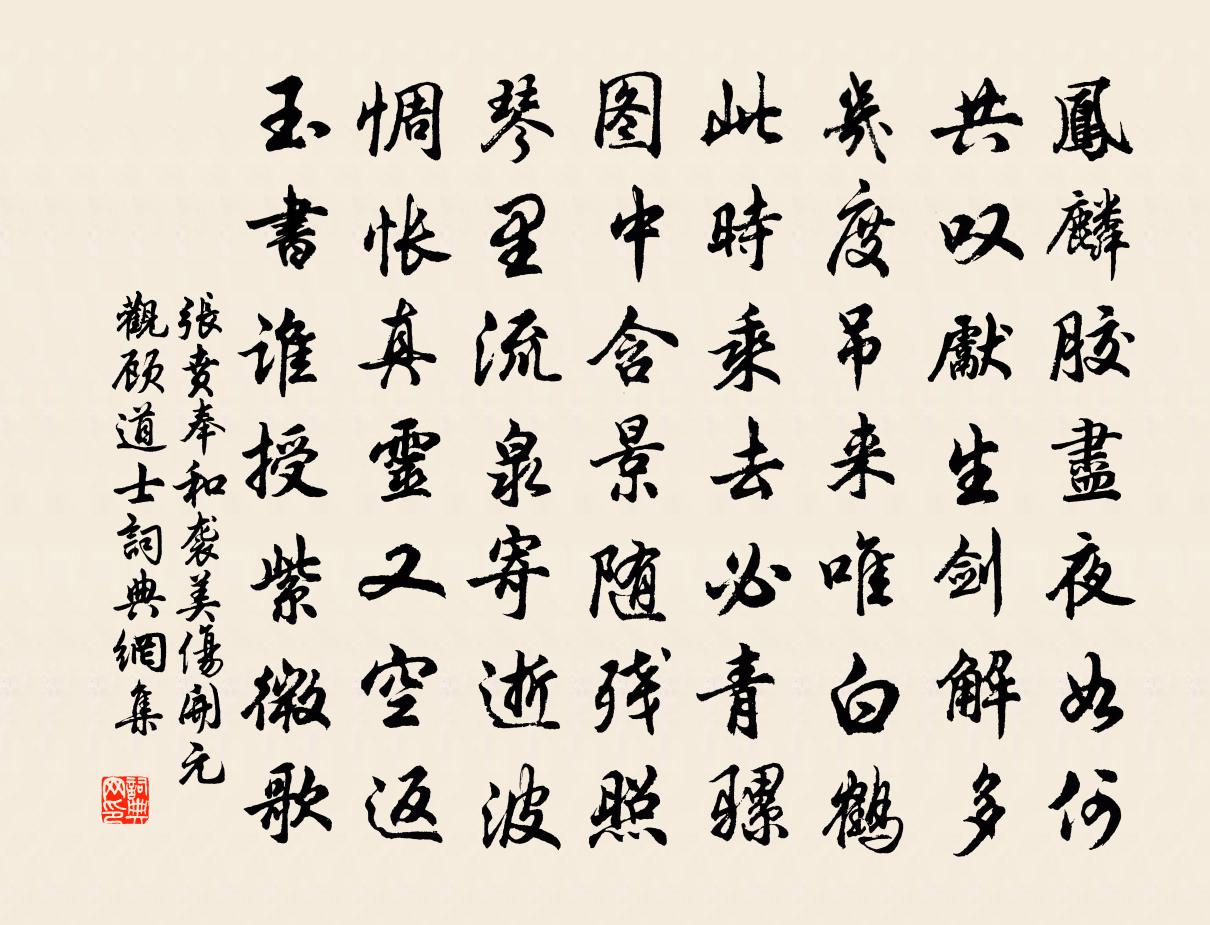 鳳麟胶盡夜如何
共叹獻生剑解多
幾度吊来唯白鶴
此時乘去必青騾
图中含景随残照
琴里流泉寄逝波
惆怅真靈又空返
玉書谁授紫微歌
張賁奉和袭美傷開元
觀顾道士詞典網集
詞典
网印